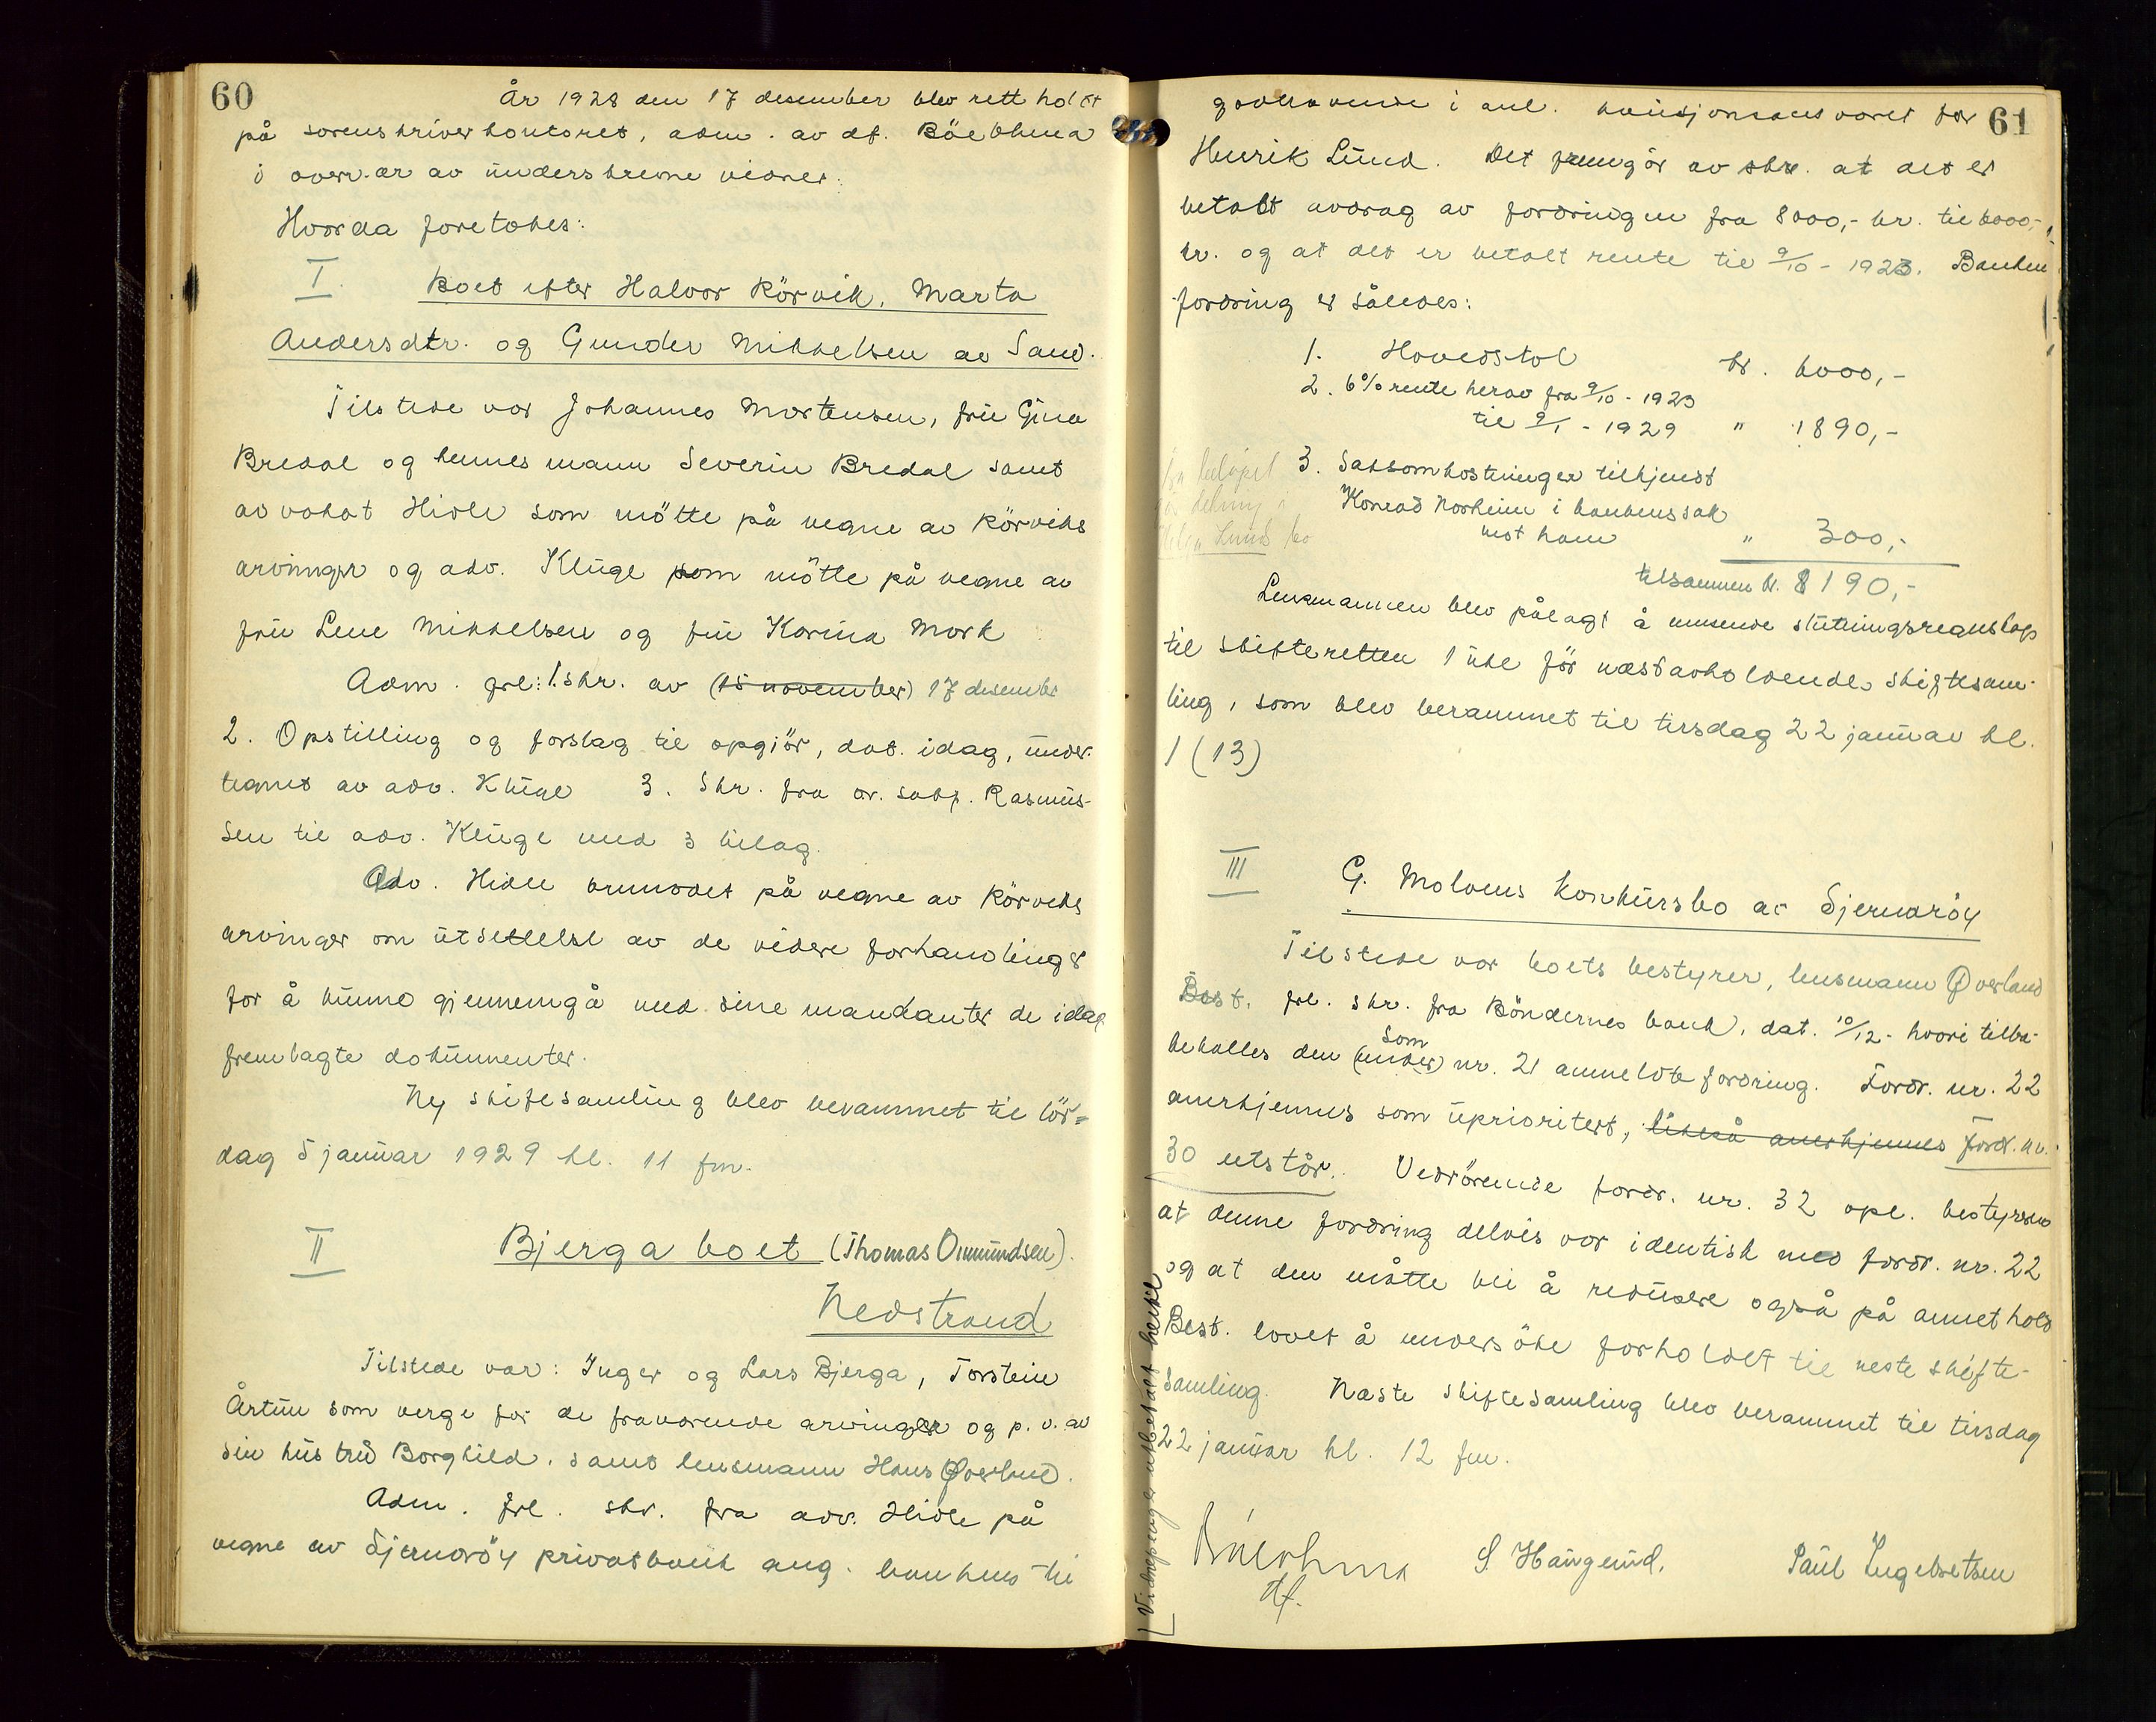 60
År 1928 den 17 desember blev rett holdt
på sorenskriverkontoret, adm. av df. Böe
i overvær av underskrevne vidner.
Hvorda foretokes:
I. Boet efter Halvor Körvik, Marta
Andersdtr. og Gunder Mikkelsen av Sand.
Tilstede var Johannes Mortensen, fru Gina
Bredal og hennes mann Severin Bredal samt
advokat Hidle som mötte på vegne av Körviks
arvinger og adv. Kluge som mötte på vegne av
fru Lene Mikkelsen og fru Karina Mork
Adm. frl: 1. skr. av (15 november) 17 desember
2. Opstilling og forslag til opgjör, dat. idag, under-
tegnet av adv. Kluge 3. Skr. fra or. sakf. Rasmus-
sen til adv. Kluge med 3 bilag.
Adv. Hidle anmodet på vegne av Körviks
arvinger om utsettelse av de videre forhandlinger
for å kunne gjennemgå med sine mandanter de idag
fremlagte dokumenter.
Ny skiftesamling blev berammet til lör=
dag 5 januar 1929 kl. 11 fm.
II Bjerga boet (Thomas Ommundsen).
Nedstrand
Tilstede var: Inger og Lars Bjerga, Torstein
Årtun som verge for de fraværende arvinger og p. v. av
sin hustru Borghild, samt lensmann Hans Øverland.
Adm. frl. skr. fra adv. Hidle på
vegne av Sjernaröy privatbank ang. bankens til
61
godehavende i anl. kausjonsansvaret for
Henrik Lund. Det fremgår av skr. at det er
betalt avdrag av fordringen fra 8000,- kr. til 6000,-
kr. og at det er betalt rente til 9/10 - 1923. Banken
fordring er således:
1. Hovedstol kr. 6000,-
2. 6% rente herav fra 9/10 - 1923
til 9/1 - 1929 " 1890,-
3. Saksomkostninger tilkjent
Konrad Norheim i bankens sak
mot ham " 300,-
tilsammen kr. 8190,-
beløpet
Lund bo
Lensmannen blev pålagt å innsende slutningsregnskap
til skifteretten 1 uke för næstavholdende skiftesam-
ling, som blev berammet til tirsdag 22 januar kl.
1 (13)
III G. Molvens konkursbo av Sjernaröy
Tilstede var boets bestyrer, lensmann Øverland
Best. frl. skr. fra Böndernes bank, dat. 10/12 - hvori tilba-
kekalles den (under) som nr. 21 anmeldte fordring. Fordr. nr. 22
anerkjennes som uprioritert, likeså anerkjennes Ford. nr.
30 utstår. Vedrörende fordr. nr. 32 opl. bestyreren
at denne fordring delvis var identisk med fordr. nr. 22
og at den måtte bli å redusere også på annet hold
Best. lovet å undersöke forholdet til neste skifte-
samling. Næste skiftesamling blev berammet til tirsdag
22 januar kl. 12 fm.
df.
S. Haugeund.
Paul Ingebretsen
utbetalt herav